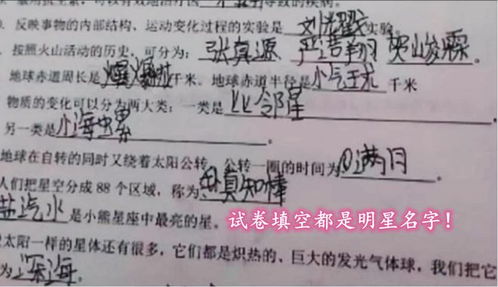 反映事物的内部结构、运动变化过程的实验是 刘耀文 实验
按照火山活动的历史，可分为：张真源 严浩翔 贺峻霖
地球赤道周长是 千米、地球赤道半径是 小气球 千米
物质的变化可以分为两大类；一类是 比邻星
另一类是 小海螺
地球在自转的同时又绕着太阳公转，公转一圈的时间为 满月
人们把星空分成 88 个区域，称为 真知棒
盐汽水 是小熊星座中最亮的星。
试卷填空都是明星名字！
太阳一样的星体还有很多，它们都是炽热的、巨大的发光气体球，我们把它
为 深海